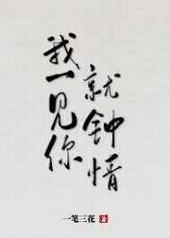 我一见你
就钟情
一笔三花 著